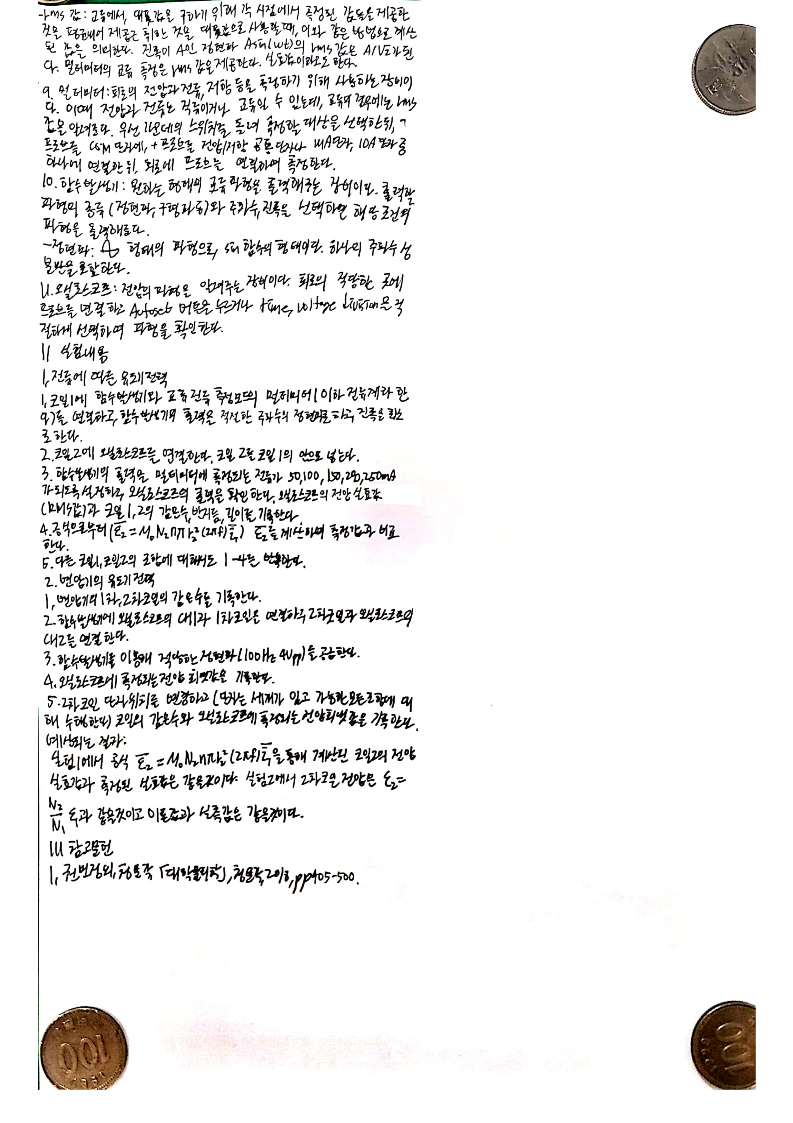 -rms 값: 교류에서, 대푯값을 구하기 위해 각 시점에서 측정된 값들을 제곱한
것을 평균내어 제곱근 취하는 것을 대푯값으로 사용할 때, 이와 같은 방법으로 계산
된 값을 의미한다. 진폭이 A인 정현파 Asin(wt)의 rms 값은 A/√2가 된
다. 멀티미터의 교류 측정은 rms 값을 제공한다. 실효값이라고도 한다.
9. 멀티미터: 회로의 전압과 전류, 저항 등을 측정하기 위해 사용하는 장비이
다. 이때 전압과 전류는 직류이거나 교류일 수 있는데, 교류의 경우에는 rms
값을 알려준다. 우선 가운데의 스위치를 돌려 측정할 대상을 선택한 뒤, -
프로브를 COM 단자에, + 프로브를 전압/저항 공통단자나 mA단자, 10A 단자 중
하나에 연결한 뒤, 회로에 프로브를 연결하여 측정한다.
10. 함수발생기: 원하는 형태의 교류파형을 출력해주는 장비이다. 출력할
파형의 종류(정현파, 구형파 등)와 주파수, 진폭을 선택하면 해당 조건의
파형을 출력해준다.
-정현파: 형태의 파형으로, sin 함수의 형태이다. 하나의 주파수 성
분만을 포함한다.
11. 오실로스코프: 전압의 파형을 알려주는 장비이다. 회로의 적당한 곳에
프로브를 연결하고 Autoset 버튼을 누르거나 time, voltage division을 적
절하게 선택하여 파형을 확인한다.
II 실험내용
1. 전류에 따른 유도기전력
1. 코일 1에 함수발생기와 교류전류 측정모드의 멀티미터(이하 전류계라 한
다)를 연결하고, 함수발생기의 출력을 적절한 주파수의 정현파로 하고, 진폭을 최소
로 한다.
2. 코일 2에 오실로스코프를 연결한다. 코일 2를 코일 1의 안으로 넣는다.
3. 함수발생기의 출력을 멀티미터에 측정되는 전류가 50, 100, 150, 200, 250mA
가 되도록 설정하고 오실로스코프의 출력을 확인한다. 오실로스코프의 전압 실효값
(RMS값)과 코일 1, 2의 감은수, 반지름, 길이를 기록한다
4. 공식으로부터 (ε̅₂ = μ₀N₂nπb₂²(2πf)i̅₁) ε̅₂를 계산하여 측정값과 비교
한다.
5. 다른 코일1, 코일2의 조합에 대해서도 1-4를 반복한다.
2. 변압기의 유도기전력
1. 변압기의 1차, 2차코일의 감은수를 기록한다.
2. 함수발생기에 오실로스코프의 CH1과 1차코일을 연결하고 2차코일과 오실로스코프의
CH2를 연결한다.
3. 함수발생기를 이용해 적당한 정현파(100Hz 4Vpp)를 공급한다.
4. 오실로스코프에 측정되는 전압 피크값을 기록한다.
5. 2차코일 단자위치를 변경하고 (단자는 세개가 있고 가능한 모든 조합에 대
해 수행한다) 코일의 감은수와 오실로스코프에 측정되는 전압피크값을 기록한다.
예상되는 결과:
실험1에서 공식 ε̅₂ = μ₀N₂nπb₂²(2πf)i̅₁을 통해 계산된 코일2의 전압
실효값과 측정된 실효값은 같을것이다. 실험2에서 2차코일 전압은 ε₂=
N₂/N₁ ε₁과 같을것이고 이론값과 실측값은 같을것이다.
III 참고문헌
1. 권민정외, 청문각 「대학물리학」, 청문각, 2018, pp405-500.